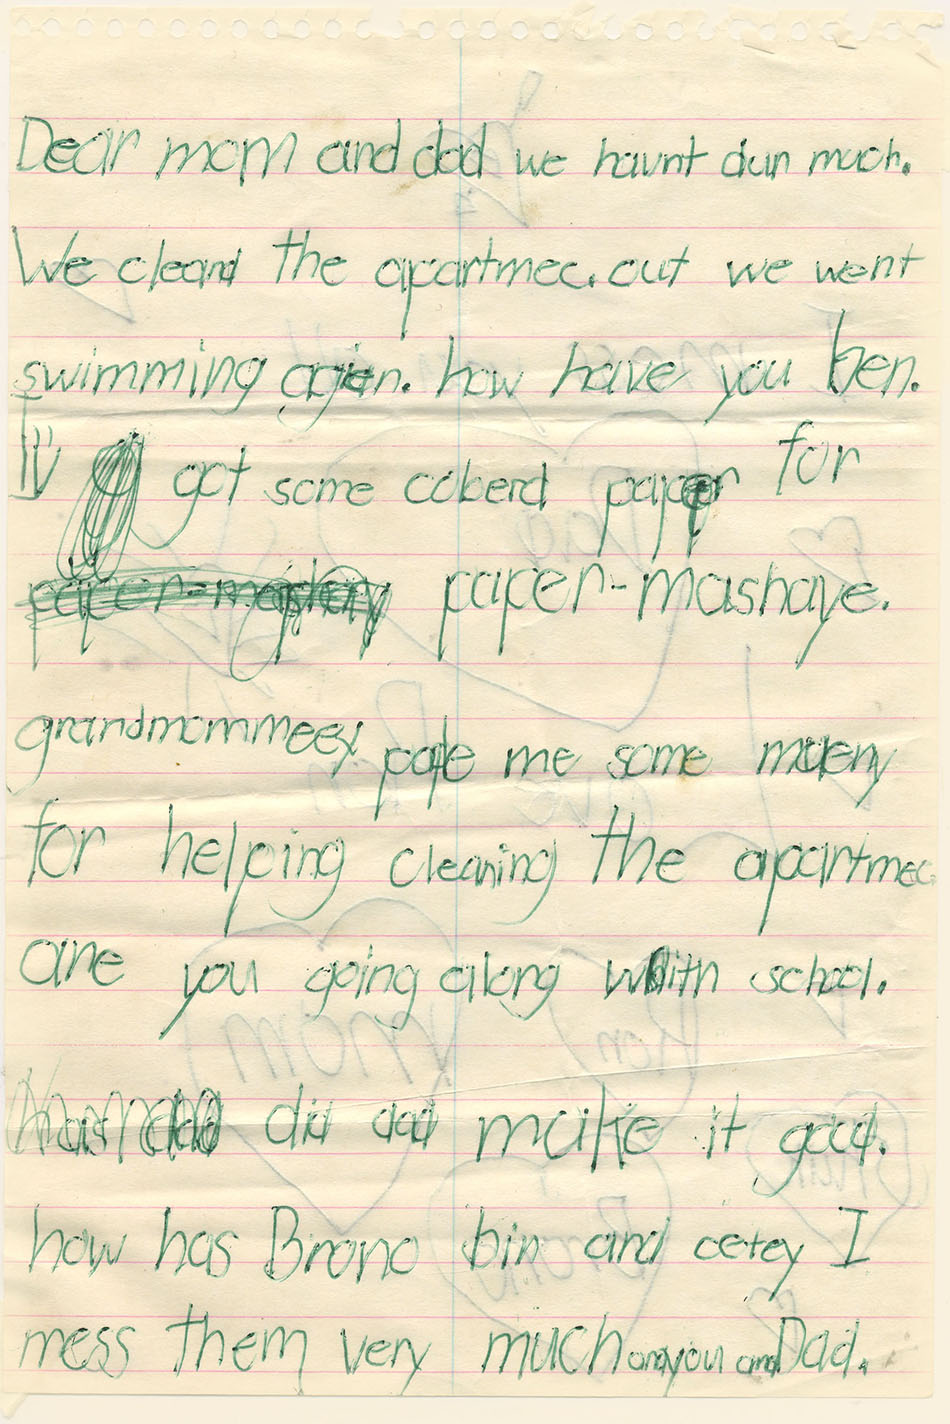 Dear mom and dad we haunt dun much.
We cleand the apartmec. out we went
swimming agien. how have you ben.
Iv got some coberd paper for
paper-mashay paper-mashaye.
grandmommeey pade me some mueny
for helping cleaning the apartmec
are you going along whith school.
did dad make it good.
how has Brono bin and cetey I
mess them very much and you and Dad.